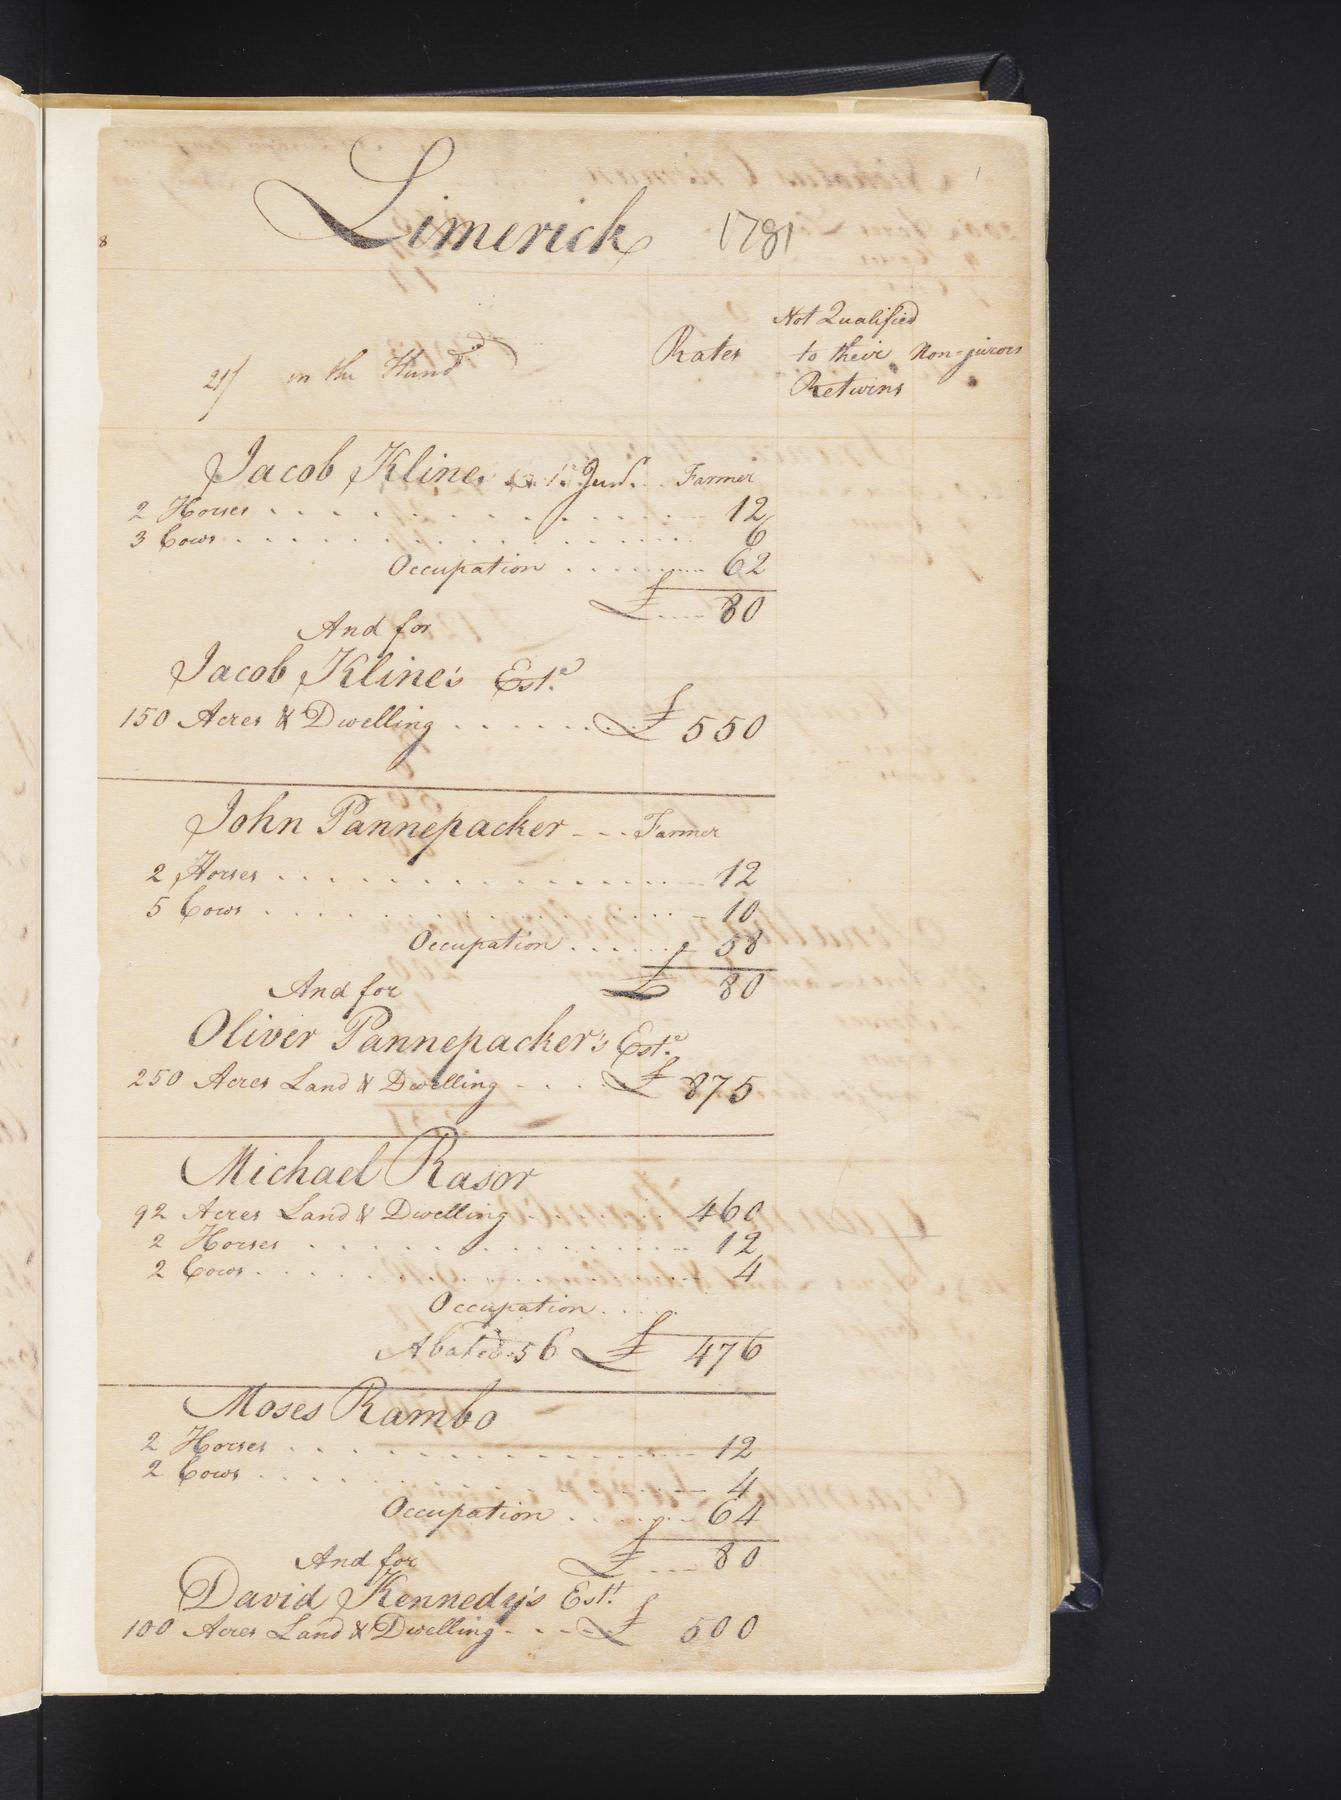 Limerick 1781
8
Not Qualified
Rates to their Non-jurors
21/ in the Hund.d
Returns
Jacob Kline Jun.r Farmer
2 Horses 12
3 Cows 6
Occupation 62
£ 80
And for
Jacob Kline's Est.e
150 Acres & Dwelling £ 550
John Pannepacker Farmer
2 Horses 12
5 Cows 10
Occupation 58
£ 80
And for
Oliver Pannepacker's Est.e
250 Acres Land & Dwelling £ 875
Michael Rasor
92 Acres Land & Dwelling 460
2 Horses 12
2 Cows 4
Occupation
Abated 56 £ 476
Moses Rambo
2 Horses 12
2 Cows 4
Occupation 64
And for £ 80
David Kennedy's Est.t
100 Acres Land & Dwelling £ 500